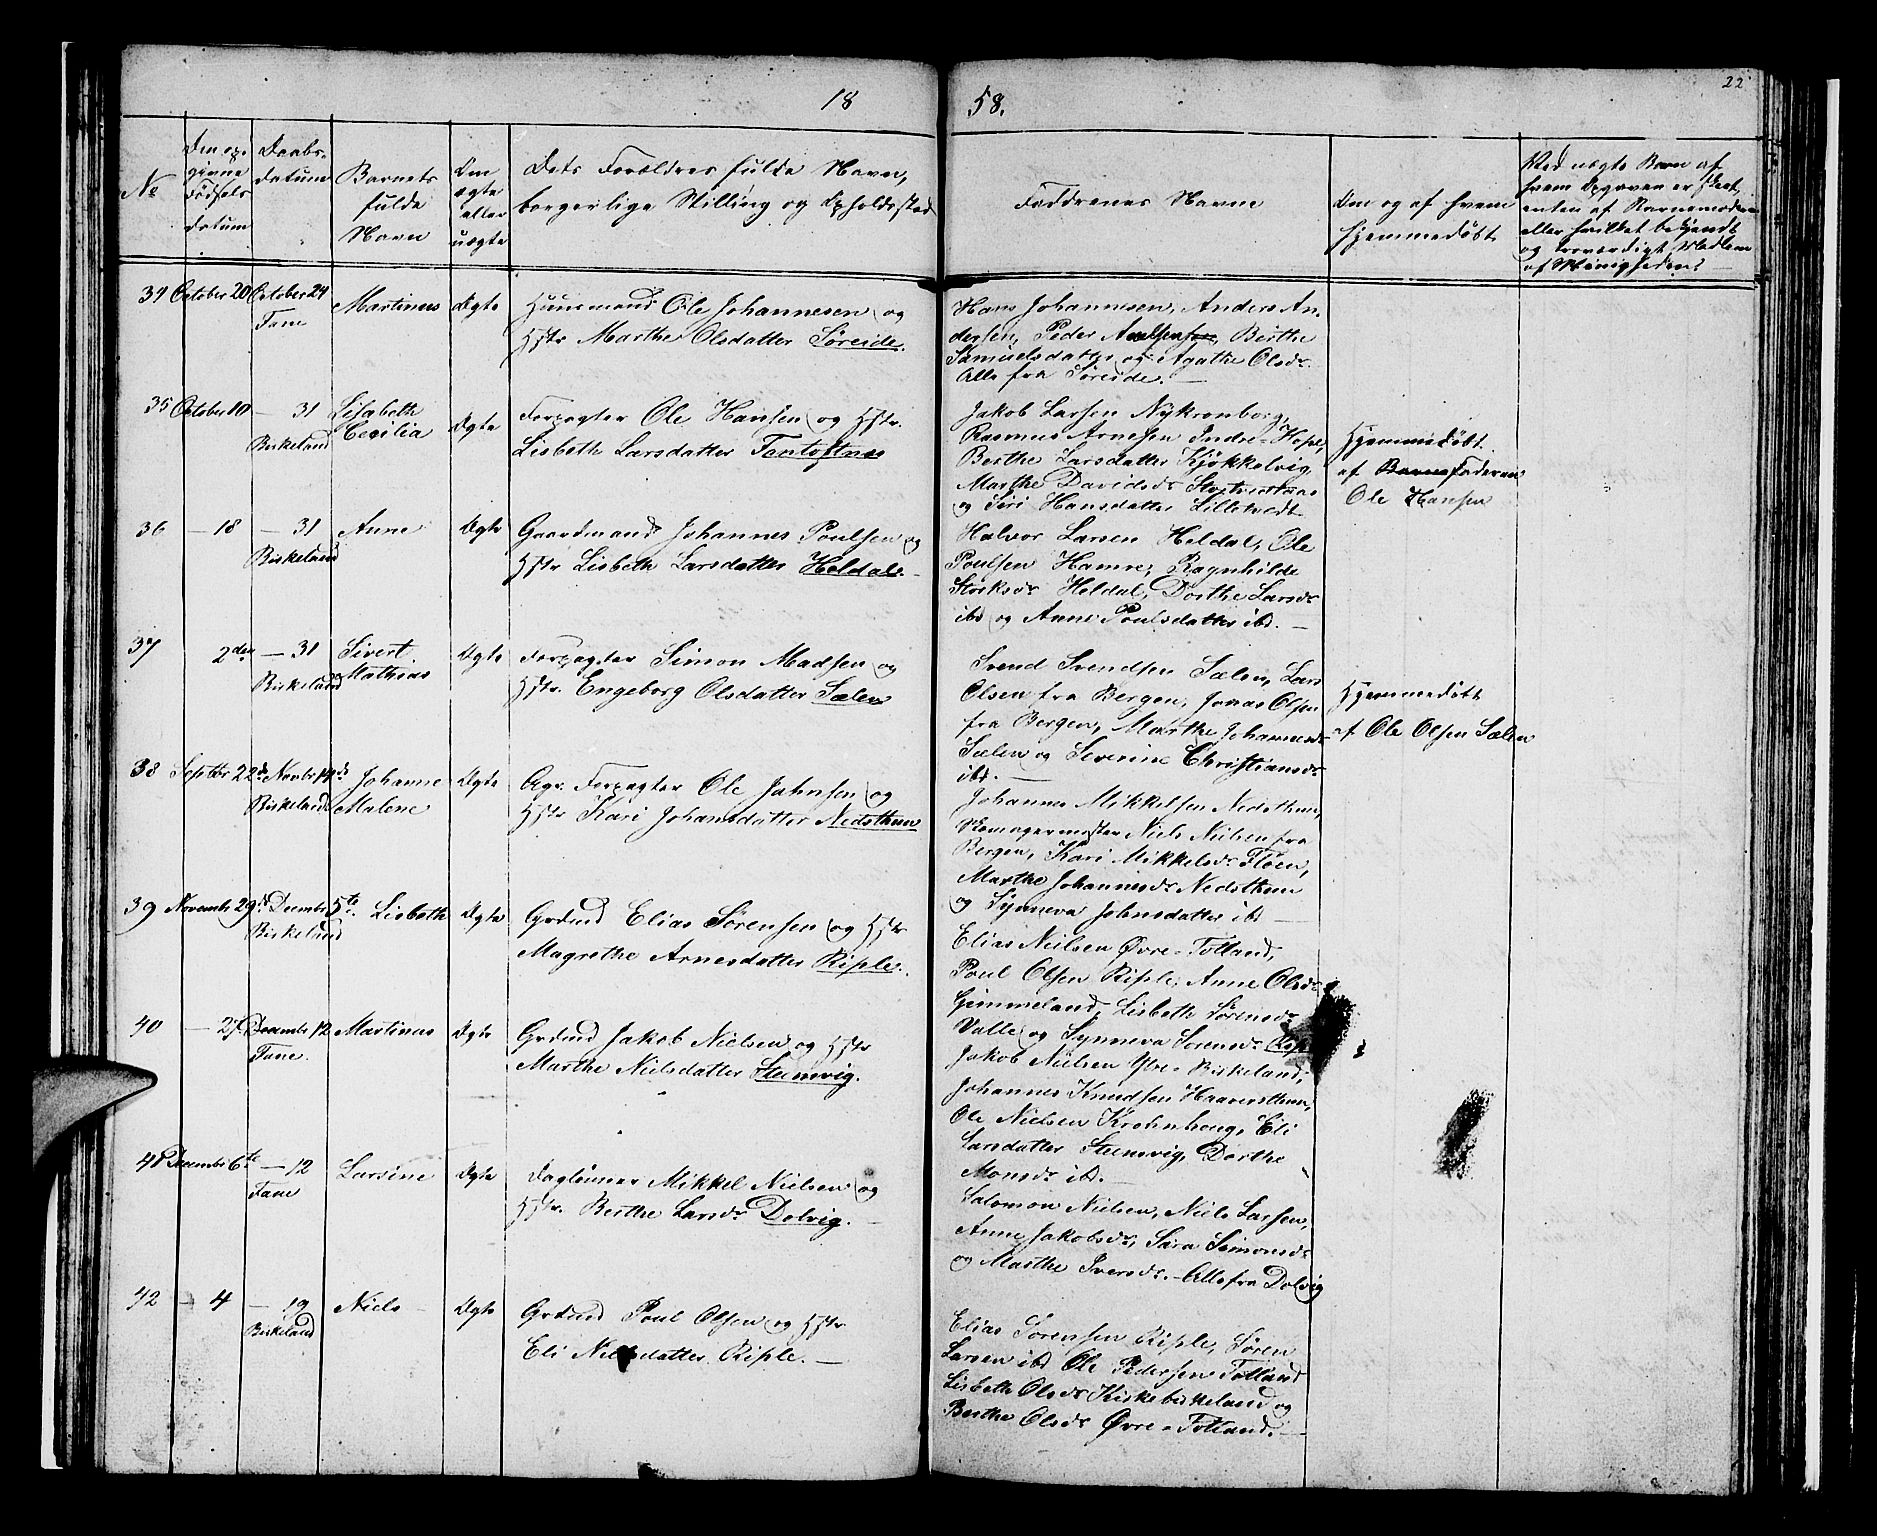 22
18 58.
No
Den op-
givne
Fødsels
datum
Daabs-
datum
Barnets
fulde
Navn
Om
ægte
eller
uægte
Dets Forældres fulde Navn,
borgerlige Stilling og Opholdssted
Faddernes Navne
Om og af hvem
hjemmedøbt
Ved uægte Barn af
hvem Opgaven er skeet,
enten af Barnemoderen
eller hvilket bekjendt
og troværdigt Medlem
af Menigheden?
34 October 20 October 24 Martinus Ægte Huusmand Ole Johannesen og
Fane
Hstr Marthe Olsdatter Søreide.
Hans Johannesen, Anders An-
dersen, Peder Berthe
Samuelsdatter og Agathe Olsdr.
Alle fra Søreide. —
35 October 10 — 31 Lisabeth Ægte Forpagter Ole Hansen og Hstr.
Birkeland Cecilia
Lisbeth Larsdatter Tontoftnes
Jakob Larsen Nykronborg,
Rasmus Arnesen Indre-Hope,
Berthe Larsdatter Kjøkkelvig,
Marthe Davidsdr
og Siri Hansdatter Lilletvedt
Hjemmedøbt
af Barnefaderen
Ole Hansen
36 — 18 — 31 Anne Ægte Gaardmand Johannes Poulsen og
Birkeland
Hstr Lisbeth Larsdatter Heldal. —
Halvor Larsen Heldal, Ole
Poulsen Hamre, Ragnhilde
Heldal, Dorthe Larsdr
ibd og Anne Poulsdatter ibd. —
37 2den — 31 Sivert Ægte Forpagter Simon Madsen og
Birkeland Mathias
Hstr. Engeborg Olsdatter Sælen
Svend Svendsen Sælen, Lars
Olsen fra Bergen, Jonas Olsen
fra Bergen, Marthe Johannesdr
Sælen og Severine Christiansdr
ibd. —
Hjemmedøbt
af Ole Olsen Sælen
38 Septbr 22de Novbr 14de Johanne Ægte Forpagter Ole Johnsen og
Birkeland Malene
Hstr Kari Johansdatter Nedsthun
Johannes Mikkelsen Nedsthun,
Niels Nielsen fra
Bergen, Kari Mikkelsdr Fløen,
Marthe Johannesdr Nedsthun
og Synneva Johnsdatter ibd —
39 Novembr 29de Decembr 5te Lisbeth Ægte Grdmd Elias Sørensen og Hstr
Birkeland
Magrethe Arnesdatter Riple.
Elias Nielsen Øvre-Totland,
Poul Olsen Riple, Anne Olsdr
Gimmeland, Lisbeth Sørensdr
Valle og Synneva Sørensdr Riple
40 — 27 Decembr 12 Martinus Ægte Grdmd Jakob Nielsen og Hstr
Fane.
Marthe Nielsdatter Steinsvig.
Jakob Nielsen Birkeland,
Johannes Knudsen
Ole Nielsen Krohnhoug, Eli
Larsdatter Steinsvig, Dorthe
Monsdr ibd. —
41 Decembr 6te — 12 Larsine Ægte Daglønner Mikkel Nielsen og
Fane
Hstr. Berthe Larsdr Dolvig. —
Salomon Nielsen, Niels Larsen,
Anne Jakobsdr, Sara Simonsdr
og Marthe Iversdr. — Alle fra Dolvig
42 — 4 — 19 Niels Ægte Grdmd Poul Olsen og Hstr
Birkeland
Eli Nielsdatter Riple. —
Elias Sørensen Riple, Søren
Larsen ibd Ole Pedersen Totland
Lisbeth Olsdr Kirkebirkeland og
Berthe Olsdr Øvre-Totland. —